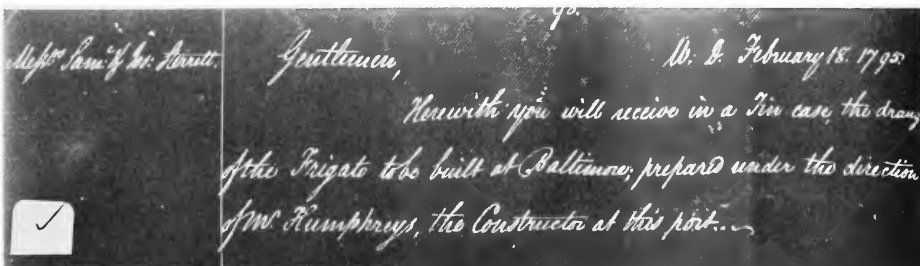 98.
Messrs. Saml. & Jos. Sterrett.
Gentlemen,
W. D. February 18. 1795.
Herewith you will receive in a Tin case, the draug
of the Frigate to be built at Baltimore; prepared under the direction
of Mr. Humphreys, the Constructor at this port.